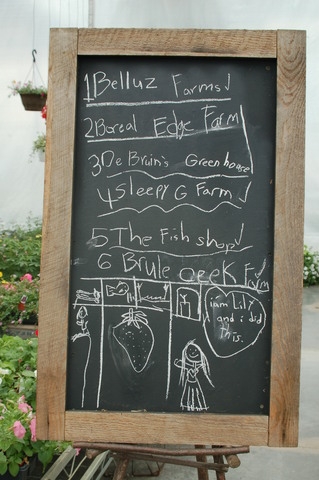 1 Belluz Farms
2 Boreal Edge Farm
3 De Bruin's Greenhouse
4 Sleepy G Farm
5 The Fish shop
6 Brule creek Farm
i am Lily
and i did
this.